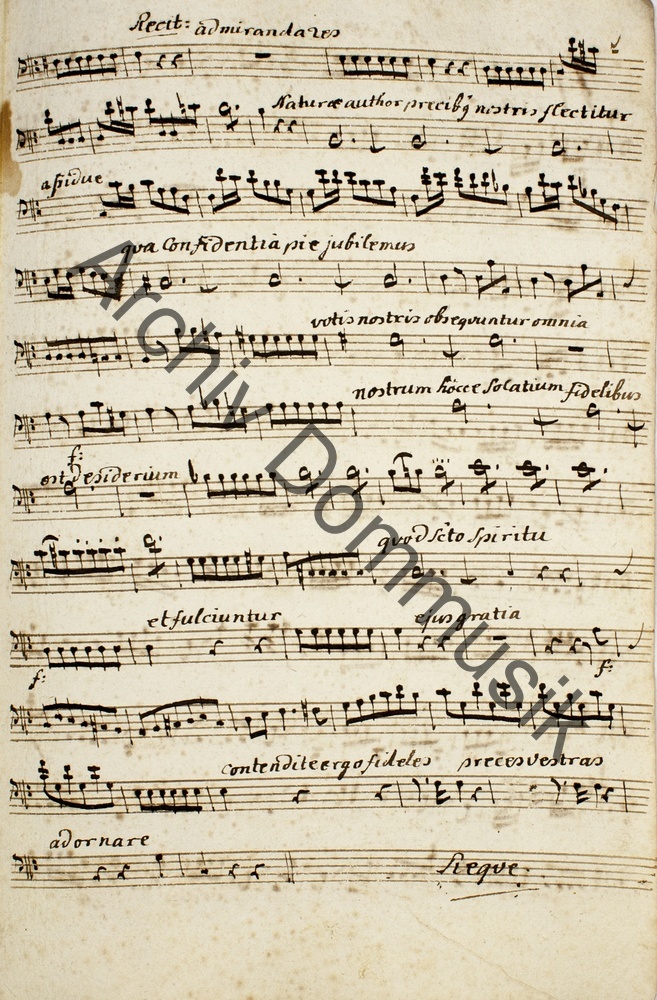 Recit: admiranda res
Naturæ author precibq nostris flectitur
aßidue
qua Confidentia pie jubilemus
votis nostris obsequuntur omnia
nostrum hocce Solatium fidelibus
f:
est Desiderium
quod Scto Spiritu
et fulciuntur ejus gratia
f: f:
contendite ergo fideles preces vestras
adornare
Sieque.
Archiv Dommusik